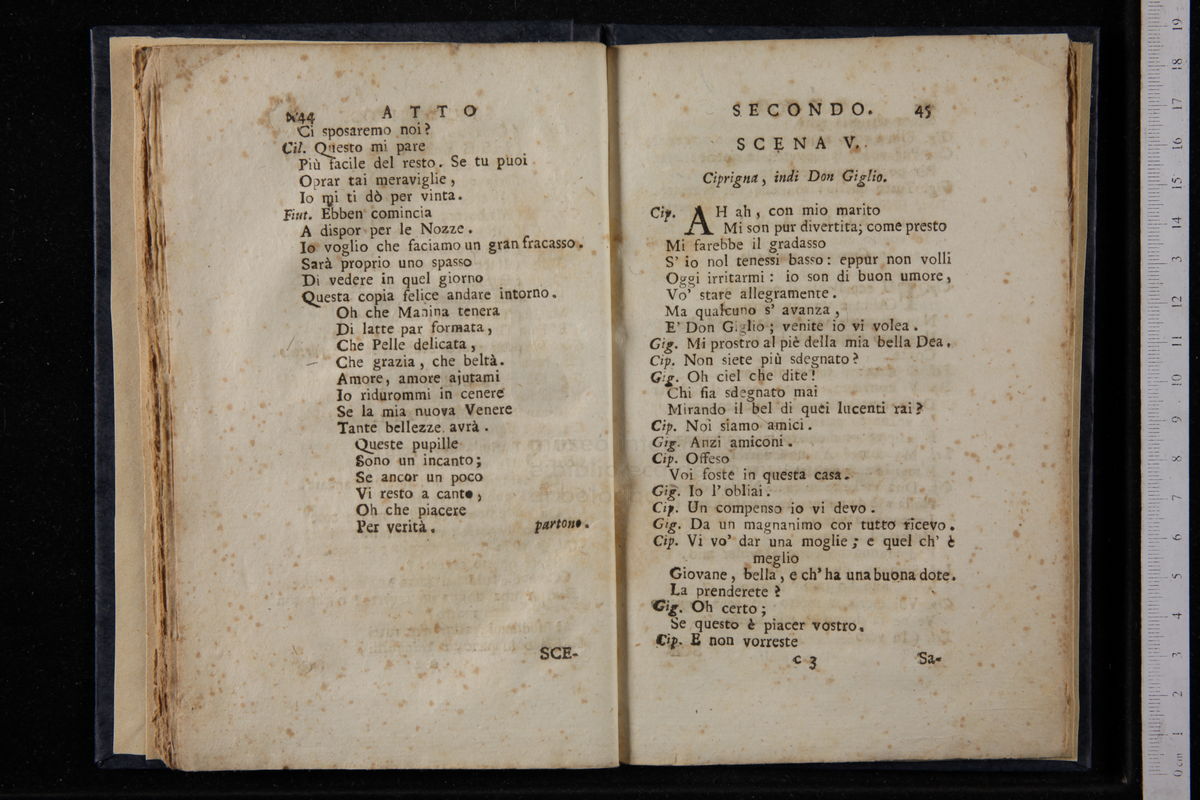 44 ATTO
Ci sposaremo noi?
Cil. Questo mi pare
Più facile del resto. Se tu puoi
Oprar tai meraviglie,
Io mi ti dò per vinta.
Fiut. Ebben comincia
A dispor per le Nozze.
Io voglio che faciamo un gran fracasso.
Sarà proprio uno spasso
Di vedere in quel giorno
Questa copia felice andare intorno.
Oh che Manina tenera
Di latte par formata,
Che Pelle delicata,
Che grazia, che beltà.
Amore, amore ajutami
Io ridurommi in cenere
Se la mia nuova Venere
Tante bellezze avrà.
Queste pupille
Sono un incanto;
Se ancor un poco
Vi resto a canto,
Oh che piacere
Per verità. partono.
SCE-
SECONDO. 45
SCENA V.
Ciprigna, indi Don Giglio.
Cip. AH ah, con mio marito
Mi son pur divertita; come presto
Mi farebbe il gradasso
S' io nol tenessi basso: eppur non volli
Oggi irritarmi: io son di buon umore,
Vo' stare allegramente.
Ma qualcuno s' avanza,
E' Don Giglio; venite io vi volea.
Gig. Mi prostro al piè della mia bella Dea.
Cip. Non siete più sdegnato?
Gig. Oh ciel che dite!
Chi fia sdegnato mai
Mirando il bel di quei lucenti rai?
Cip. Noi siamo amici.
Gig. Anzi amiconi.
Cip. Offeso
Voi foste in questa casa.
Gig. Io l' obliai.
Cip. Un compenso io vi devo.
Gig. Da un magnanimo cor tutto ricevo.
Cip. Vi vo' dar una moglie; e quel ch' è
meglio
Giovane, bella, e ch' ha una buona dote.
La prenderete?
Gig. Oh certo;
Se questo è piacer vostro.
Cip. E non vorreste
C 3 Sa-
0 cm 1 2 3 4 5 6 7 8 9 10 11 12 13 14 15 16 17 18 19